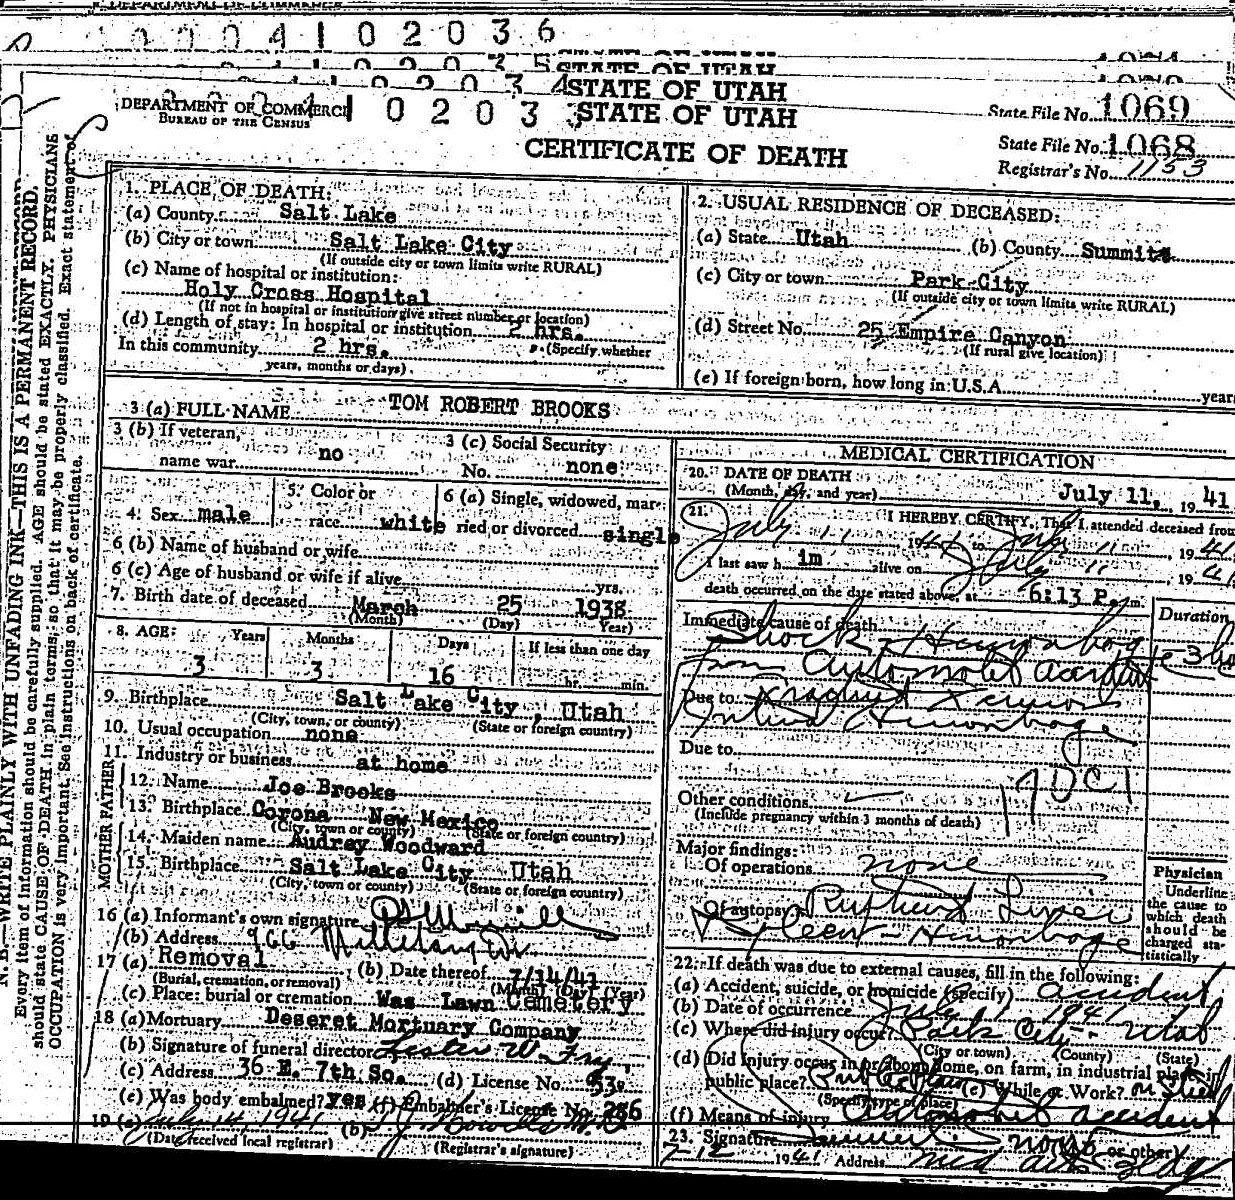 0 0 0 4 1 0 2 0 3 6
STATE OF UTAH
STATE OF UTAH
DEPARTMENT OF COMMERCE
BUREAU OF THE CENSUS
0 2 0 3
STATE OF UTAH
State File No. 1069
CERTIFICATE OF DEATH
State File No. 1068
Registrar's No. 1153
N. B.—WRITE PLAINLY WITH UNFADING INK—THIS IS A PERMANENT RECORD.
Every item of information should be carefully supplied. AGE should be stated EXACTLY. PHYSICIANS
should state CAUSE OF DEATH in plain terms, so that it may be properly classified. Exact statement of
OCCUPATION is very important. See instructions on back of certificate.
1. PLACE OF DEATH:
(a) County Salt Lake
(b) City or town Salt Lake City
(If outside city or town limits write RURAL)
(c) Name of hospital or institution:
Holy Cross Hospital
(If not in hospital or institution give street number or location)
(d) Length of stay: In hospital or institution 2 hrs.
In this community 2 hrs. (Specify whether
years, months or days)
2. USUAL RESIDENCE OF DECEASED:
(a) State Utah (b) County Summit
(c) City or town Park City
(If outside city or town limits write RURAL)
(d) Street No. 25 Empire Canyon
(If rural give location)
(e) If foreign born, how long in U.S.A. years
3 (a) FULL NAME TOM ROBERT BROOKS
3 (b) If veteran, name war no
3 (c) Social Security No. none
4. Sex male
5. Color or race white
6 (a) Single, widowed, married or divorced single
6 (b) Name of husband or wife
6 (c) Age of husband or wife if alive yrs.
7. Birth date of deceased March 25 1938
(Month) (Day) (Year)
8. AGE: Years Months Days If less than one day
3 3 16 hr. min.
9. Birthplace Salt Lake City, Utah
(City, town, or county) (State or foreign country)
10. Usual occupation none
11. Industry or business at home
FATHER
12. Name Joe Brooks
13. Birthplace Corona New Mexico
(City, town or county) (State or foreign country)
MOTHER
14. Maiden name Audrey Woodward
15. Birthplace Salt Lake City Utah
(City, town or county) (State or foreign country)
16 (a) Informant's own signature
(b) Address 966
17 (a) Removal (b) Date thereof 7/14/41
(Burial, cremation, or removal) (Month) (Day) (Year)
(c) Place: burial or cremation Was Lawn Cemetery
18 (a) Mortuary Deseret Mortuary Company
(b) Signature of funeral director Lester W. Fry
(c) Address 36 E. 7th So. (d) License No.
(e) Was body embalmed? yes (f) Embalmer's License No. 286
19 (a) July 14, 1941 (b)
(Date received local registrar) (Registrar's signature)
MEDICAL CERTIFICATION
20. DATE OF DEATH
(Month, day, and year) July 11, 1941
21. I HEREBY CERTIFY, That I attended deceased from
July 11 1941 to July 11, 1941
I last saw him alive on July 11, 1941
death occurred on the date stated above, at 6:13 P. m.
Immediate cause of death Duration
Shock - Hemorrhage
from Automobile accident 3
Due to
Hemorrhage
Due to
Other conditions
(Include pregnancy within 3 months of death)
Major findings:
Of operations none
Of autopsy Ruptured Liver
Spleen - Hemorrhage
Physician
Underline the cause to which death should be charged statistically
22. If death was due to external causes, fill in the following:
(a) Accident, suicide, or homicide (specify) accident
(b) Date of occurrence July 1941
(c) Where did injury occur? Park City - Utah
(City or town) (County) (State)
(d) Did injury occur in or about home, on farm, in industrial place, in
public place? (e) While at Work?
(Specify type of place)
(f) Means of injury Automobile accident
23. Signature (M.D. or other)
7-12 1941 Address Med Arts Bldg